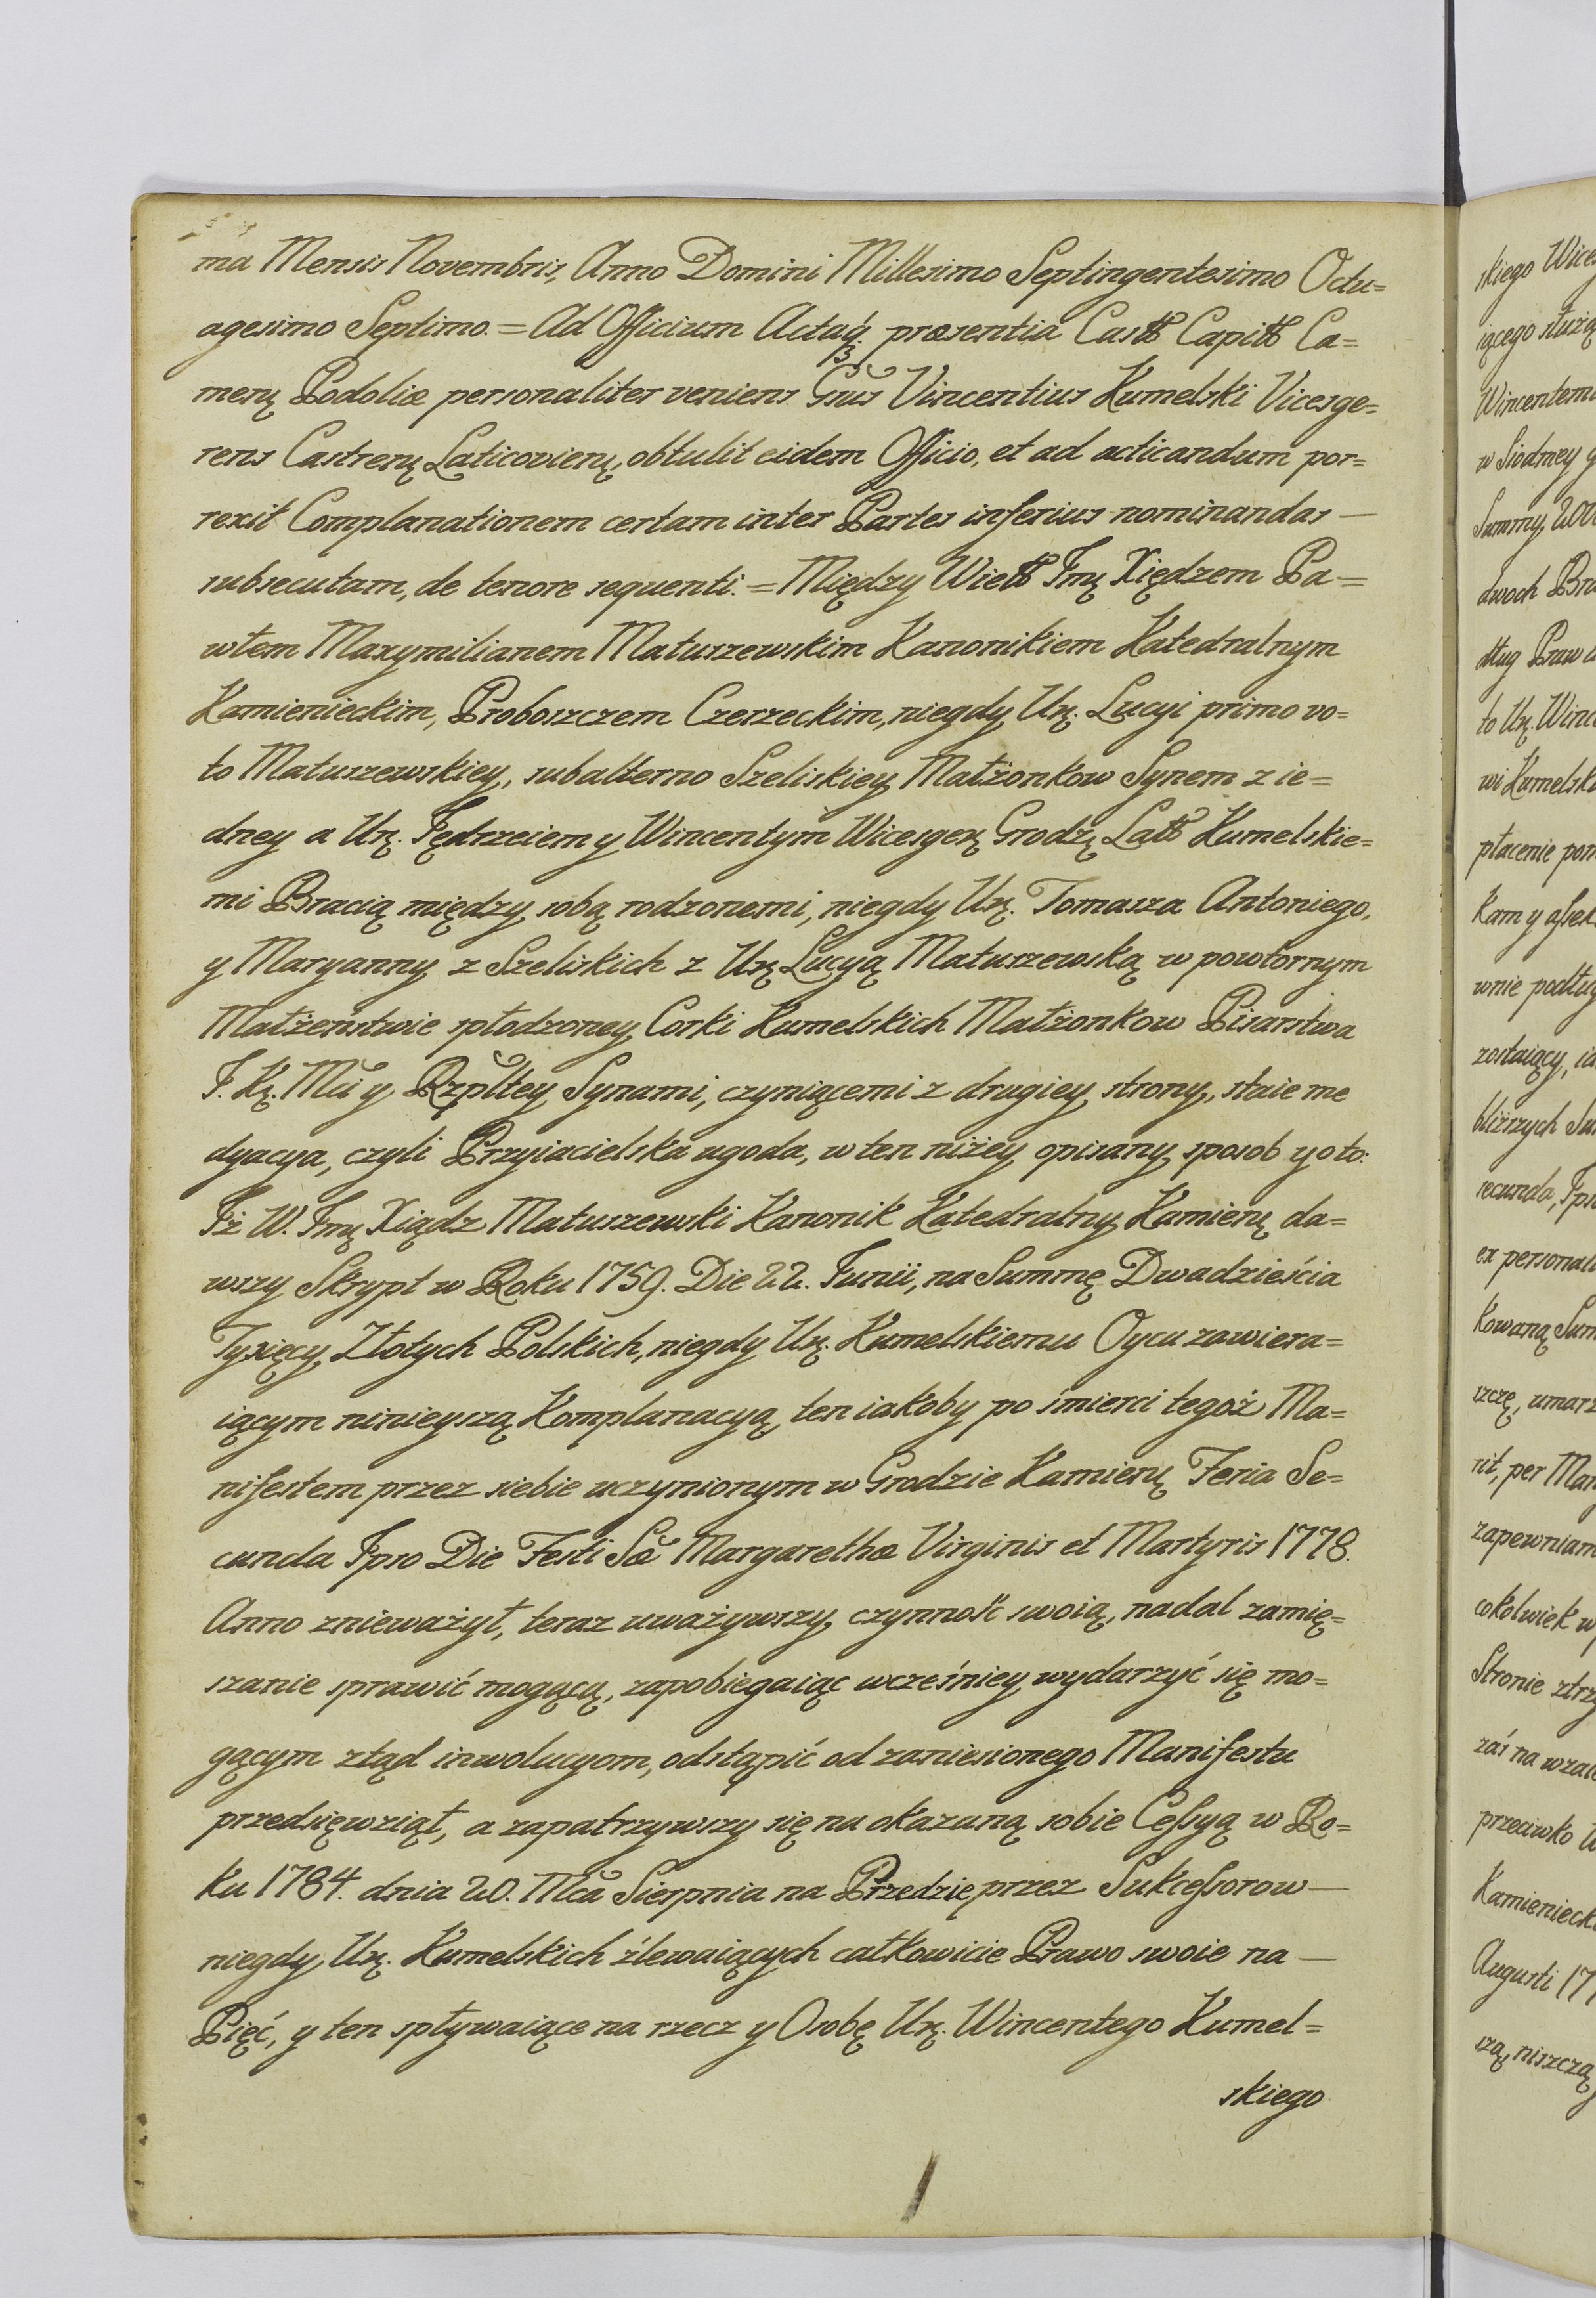 ma Mensis Novembris, Anno Domini Millesimo Septingentesimo Octu=
agesimo Septimo. = Ad Officium Actaq3. præsentia Castr Capitl Ca=
menȩ Podoliæ personaliter veniens Gnus Vincentius Kumelski Vicesge=
rens Castrenȩ Laticovienȩ, obtulit eidem Officio, et ad acticandum por=
rexit Complanationem certam inter Partes inferius nominandas —
subsecutam, de tenore sequenti. = Między Wiel Jmȩ Xiędzem Pa=
włem Maxymilianem Matuszewskim Kanonikiem Katedralnym
Kamienieckim, Proboszczem Czerzeckim, niegdy Urȩ. Lucyi primo vo=
to Matuszewskiey, subalterno Szeliskiey Małżonkow Synem z ie=
dney a Urȩ. Jędrzeiem y Wincentym Wicesgerȩ Grodzȩ Lat Kumelskie=
mi Bracią między sobą rodzonemi, niegdy Urȩ. Tomasza Antoniego,
y Maryanny z Szeliskich z Urȩ Lucyą Matuszewską w powtornym
Małżeństwie spłodzoney Corki Kumelskich Małżonkow Pisarstwa
J. Kȩ. Mci y Rzpltey Synami, czyniącemi z drugiey strony, staie me
dyacya, czyli Przyiacielska ugoda, w ten niżey opisany sposob y oto:
Iż W. Jmȩ Xiądz Matuszewski Kanonik Katedralny Kamienȩ da=
wszy Skrypt w Roku 1759. Die 22. Junii, na Summę Dwadzieścia
Tysięcy Złotych Polskich, niegdy Urȩ. Kumelskiemu Oycu zawiera=
iącym ninieyszą Komplanacyą, ten iakoby po śmierci tegoż Ma=
nifestem przez siebie uczynionym w Grodzie Kamienȩ Feria Se=
cunda Ipso Die Festi Sæ Margarethæ Virginis et Martyris 1778.
Anno znieważył, teraz uważywszy czynność swoią, nadal zamię=
szanie sprawić mogącą, zapobiegaiąc wcześniey wydarzyć się mo=
gącym ztąd inwolucyom, odstąpić od zaniesionego Manifestu
przedsięwziął, a zapatrzywszy się na okazaną sobie Cessyą w Ro=
ku 1784. dnia 20. Mca Sierpnia na Przedzie przez Sukcessorow —
niegdy Urȩ. Kumelskich źlewaiących całkowicie Prawo swoie na —
Pięć, y ten spływaiące na rzecz y Osobę Urȩ. Wincentego Kumel=
skiego
skiego Wice
iącego służą
Wincentem
w Siedmey g
Summy 200
dwoch Bra
dług Praw
to Urȩ. Winc
wi Kumelsk
płacenie pom
kam y assek
wnie podług
zostaiący, ia
bliższych Su
secunda, Ips
ex personali
kowaną Sum
szczę, umarz
rit, per Man
zapewniam
cokolwiek w
Stronie ztrz
zaś na wzai
przeciwko U
Kamieniecki
Augusti 17
szą, niszczą